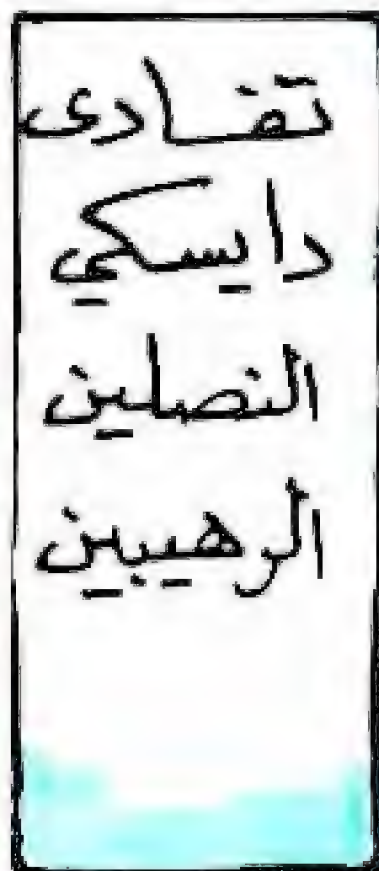 تفادى
دايسكي
النصلين
الرهيبين